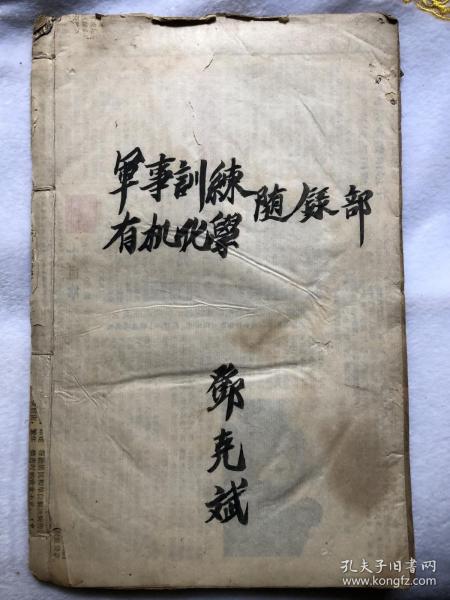 軍事訓練
有机化學
随錄部
鄧克斌
孔夫子旧书网
www.kongfz.com